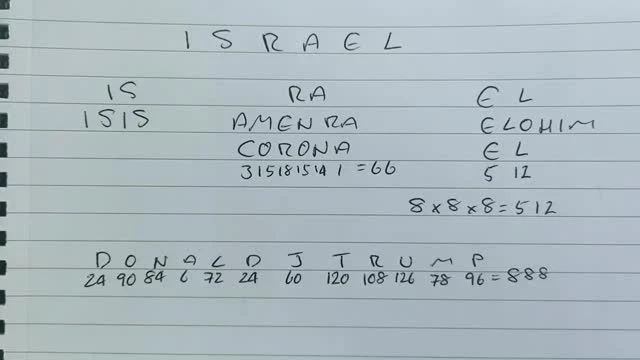 ISRAEL
IS RA EL
ISIS AMENRA ELOHIM
CORONA EL
315181514 1 = 66 5 12
8 x 8 x 8 = 512
DONALD J TRUMP
24 90 84 6 72 24 60 120 108 126 78 96 = 888